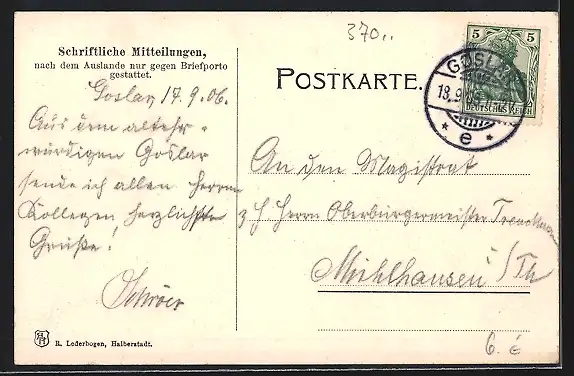 370..
Schriftliche Mitteilungen,
nach dem Auslande nur gegen Briefporto
gestattet.
POSTKARTE.
5 5
DEUTSCHES REICH
GOSLAR
18.9.06
* e *
Goslar 17.9.06.
Aus dem altehr-
würdigen Goslar
sende ich allen Herren
Kollegen herzlichste
Grüße!
An den Magistrat
z H Herrn Oberbürgermeister Trenckmann
Mühlhausen i/Th
R. Lederbogen, Halberstadt.